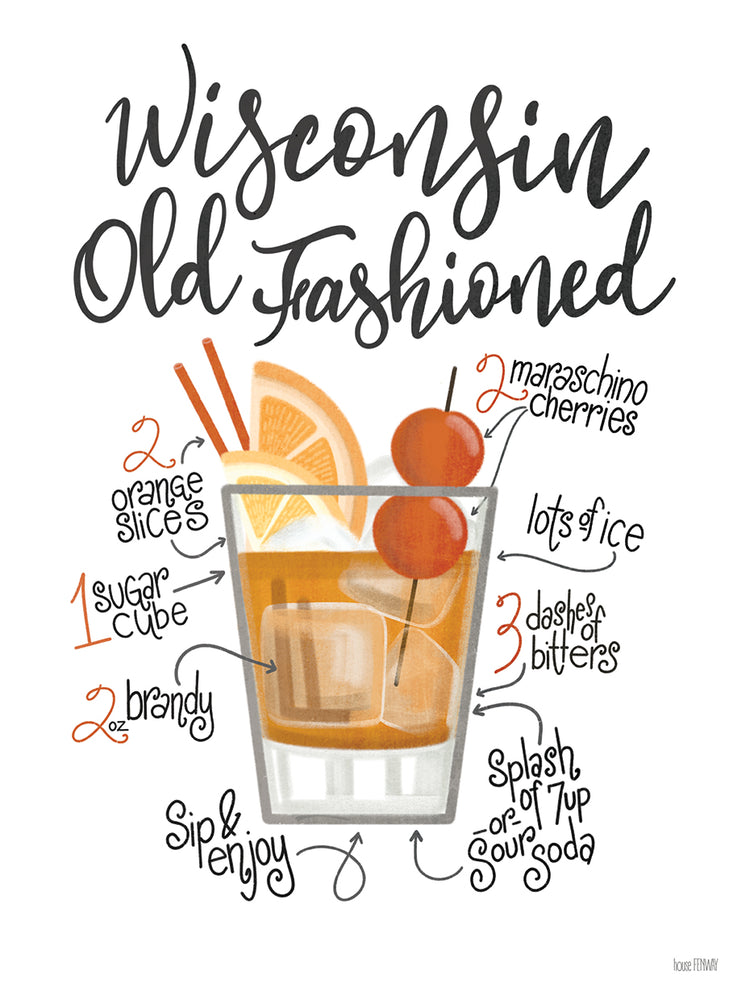 Wisconsin
Old Fashioned
2 maraschino
cherries
2
orange
slices
lots of ice
1 sugar
cube
3 dashes
of
bitters
2 oz brandy
Splash
of 7up
-or-
Sour
Soda
Sip &
enjoy
house FENWAY